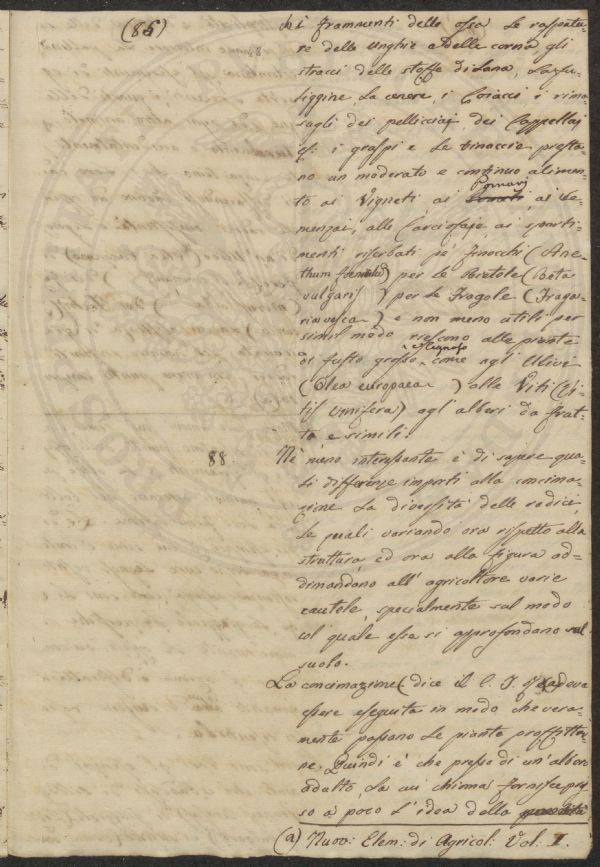 (86)
48
chi i frammenti delle ossa le raspatu=
re delle unghie e delle corna gli
stracci delle stoffe di Lana, La fu-
liggine La cenere, i Coiacci i rima
sugli dei pelliciaj dei Cappellaj
i graspi e le vinaccie presta-
no un moderato e continuo alimen-
to ai Vigneti ai Pomarj ai se-
menzai, alle Carciofaje, ai sparti-
menti riserbati pei finocchi (Ane-
thum fœniculu) per le Bietole (Beta
vulgaris) per le Fragole (Fraga-
ria vesca) e non meno utili per
simil modo riescono alle piante
di fusto grosso e legnoso come agl' Ulivi
(Olea europaea) alle Viti (Vi-
tis vinifera) agl' alberi da frut-
to, e simili.
88. Nè meno interessante è di sapere qua-
li differenze importi alla concima-
zione La diversità delle radici,
Le quali variando ora rispetto alla
struttura, ed ora alla figura ad-
dimandano all' agricoltore varie
cautele, specialmente sul modo
col quale esse si approfondano nel
suolo.
La concimazione (dice il C. J. deva
essere eseguita in modo che vera-
mente possano Le piante profittar-
ne. Quindi è che presso di un' albero
adulto, La cui chioma fornisce pres
so a poco L' idea della
(a) Nuov: Elem: di Agricol: Vol: I.